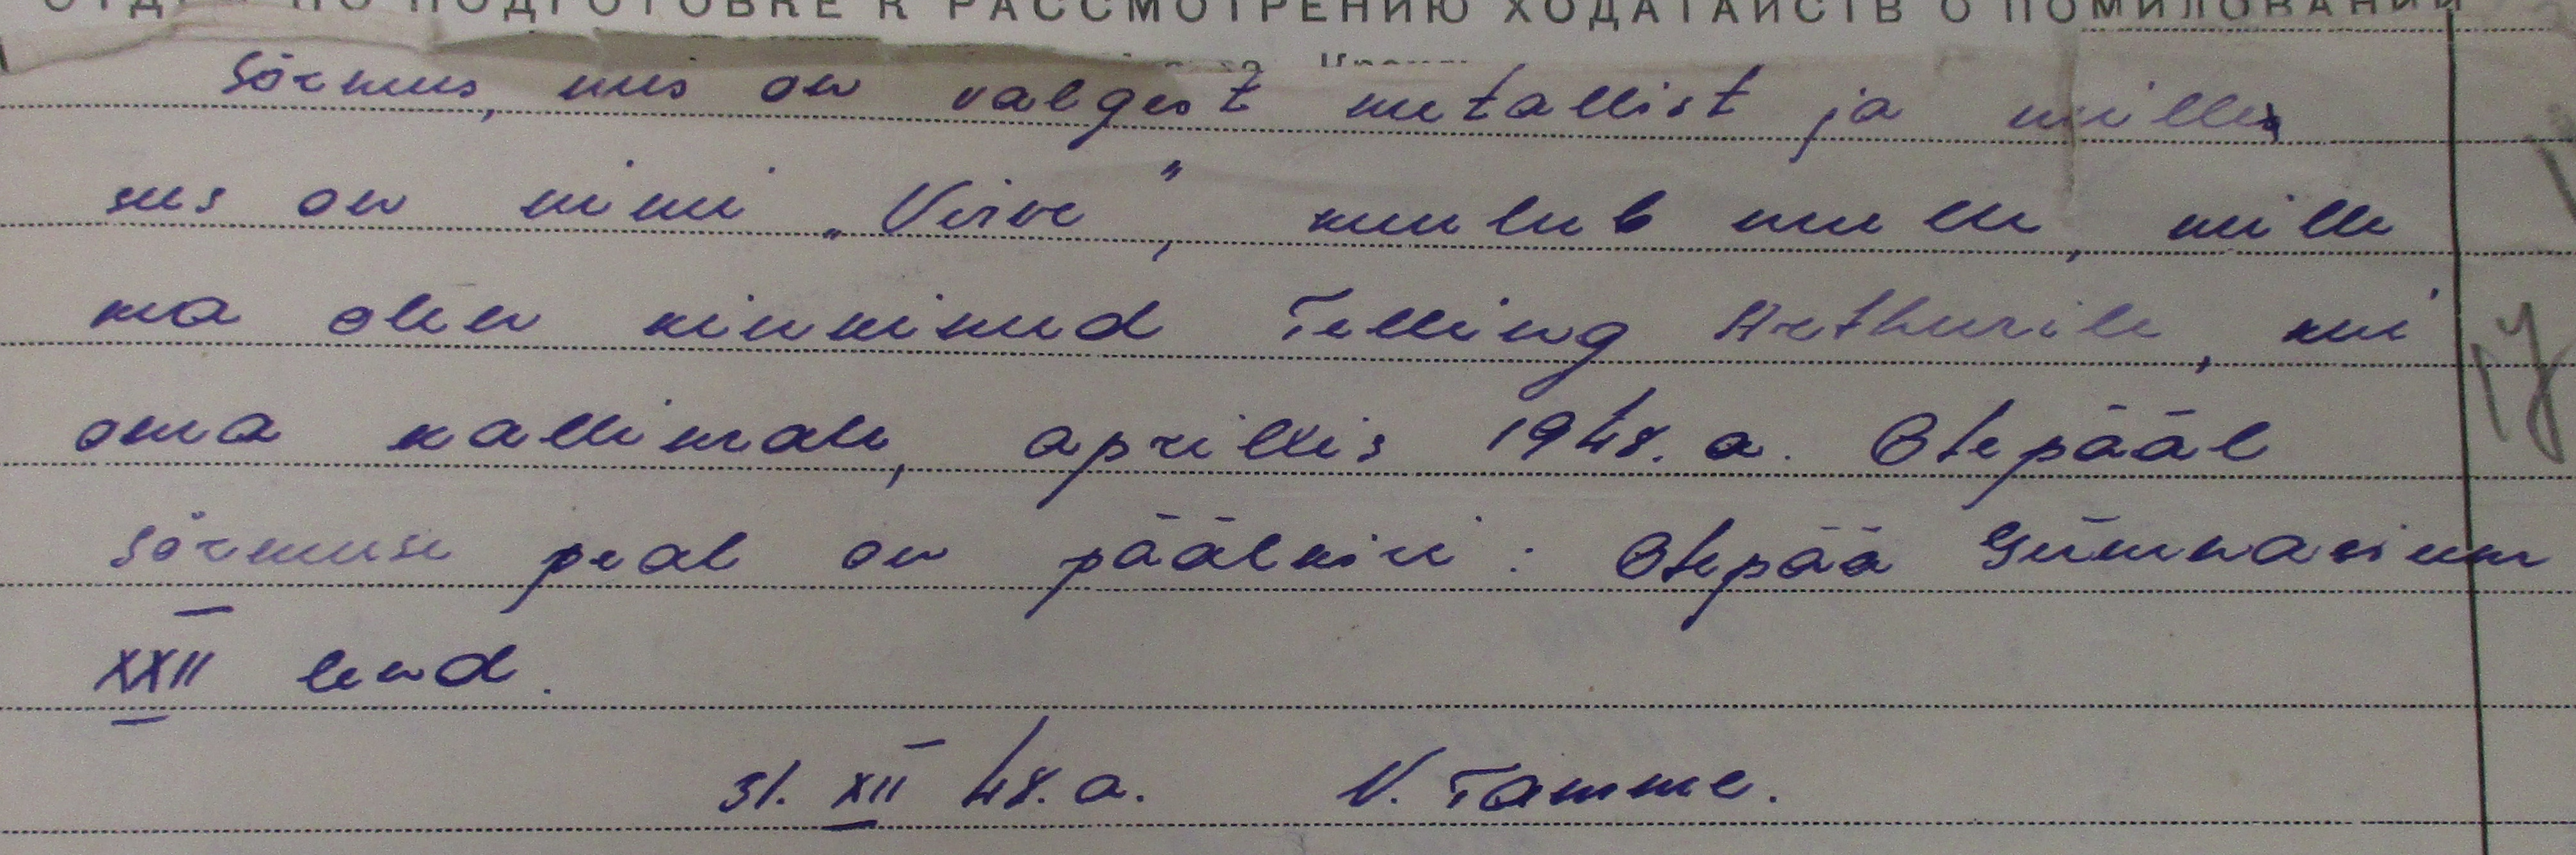 ПО ПОДГОТОВКЕ К РАССМОТРЕНИЮ ХОДАТАЙСТВ О ПОМИЛОВАНИИ
Sõrmus, mis on valgest metallist ja milles
sees on nimi „Virve”, kuulub mulle, mille
ma olen kinkinud Telling Arthurile, kui
oma kallimale, aprillis 1948. a. Otepääl
Sõrmuse peal on päälkiri: Otepää Gümnaasium
XXII lend.
31. XII 48. a. V. Tamme.